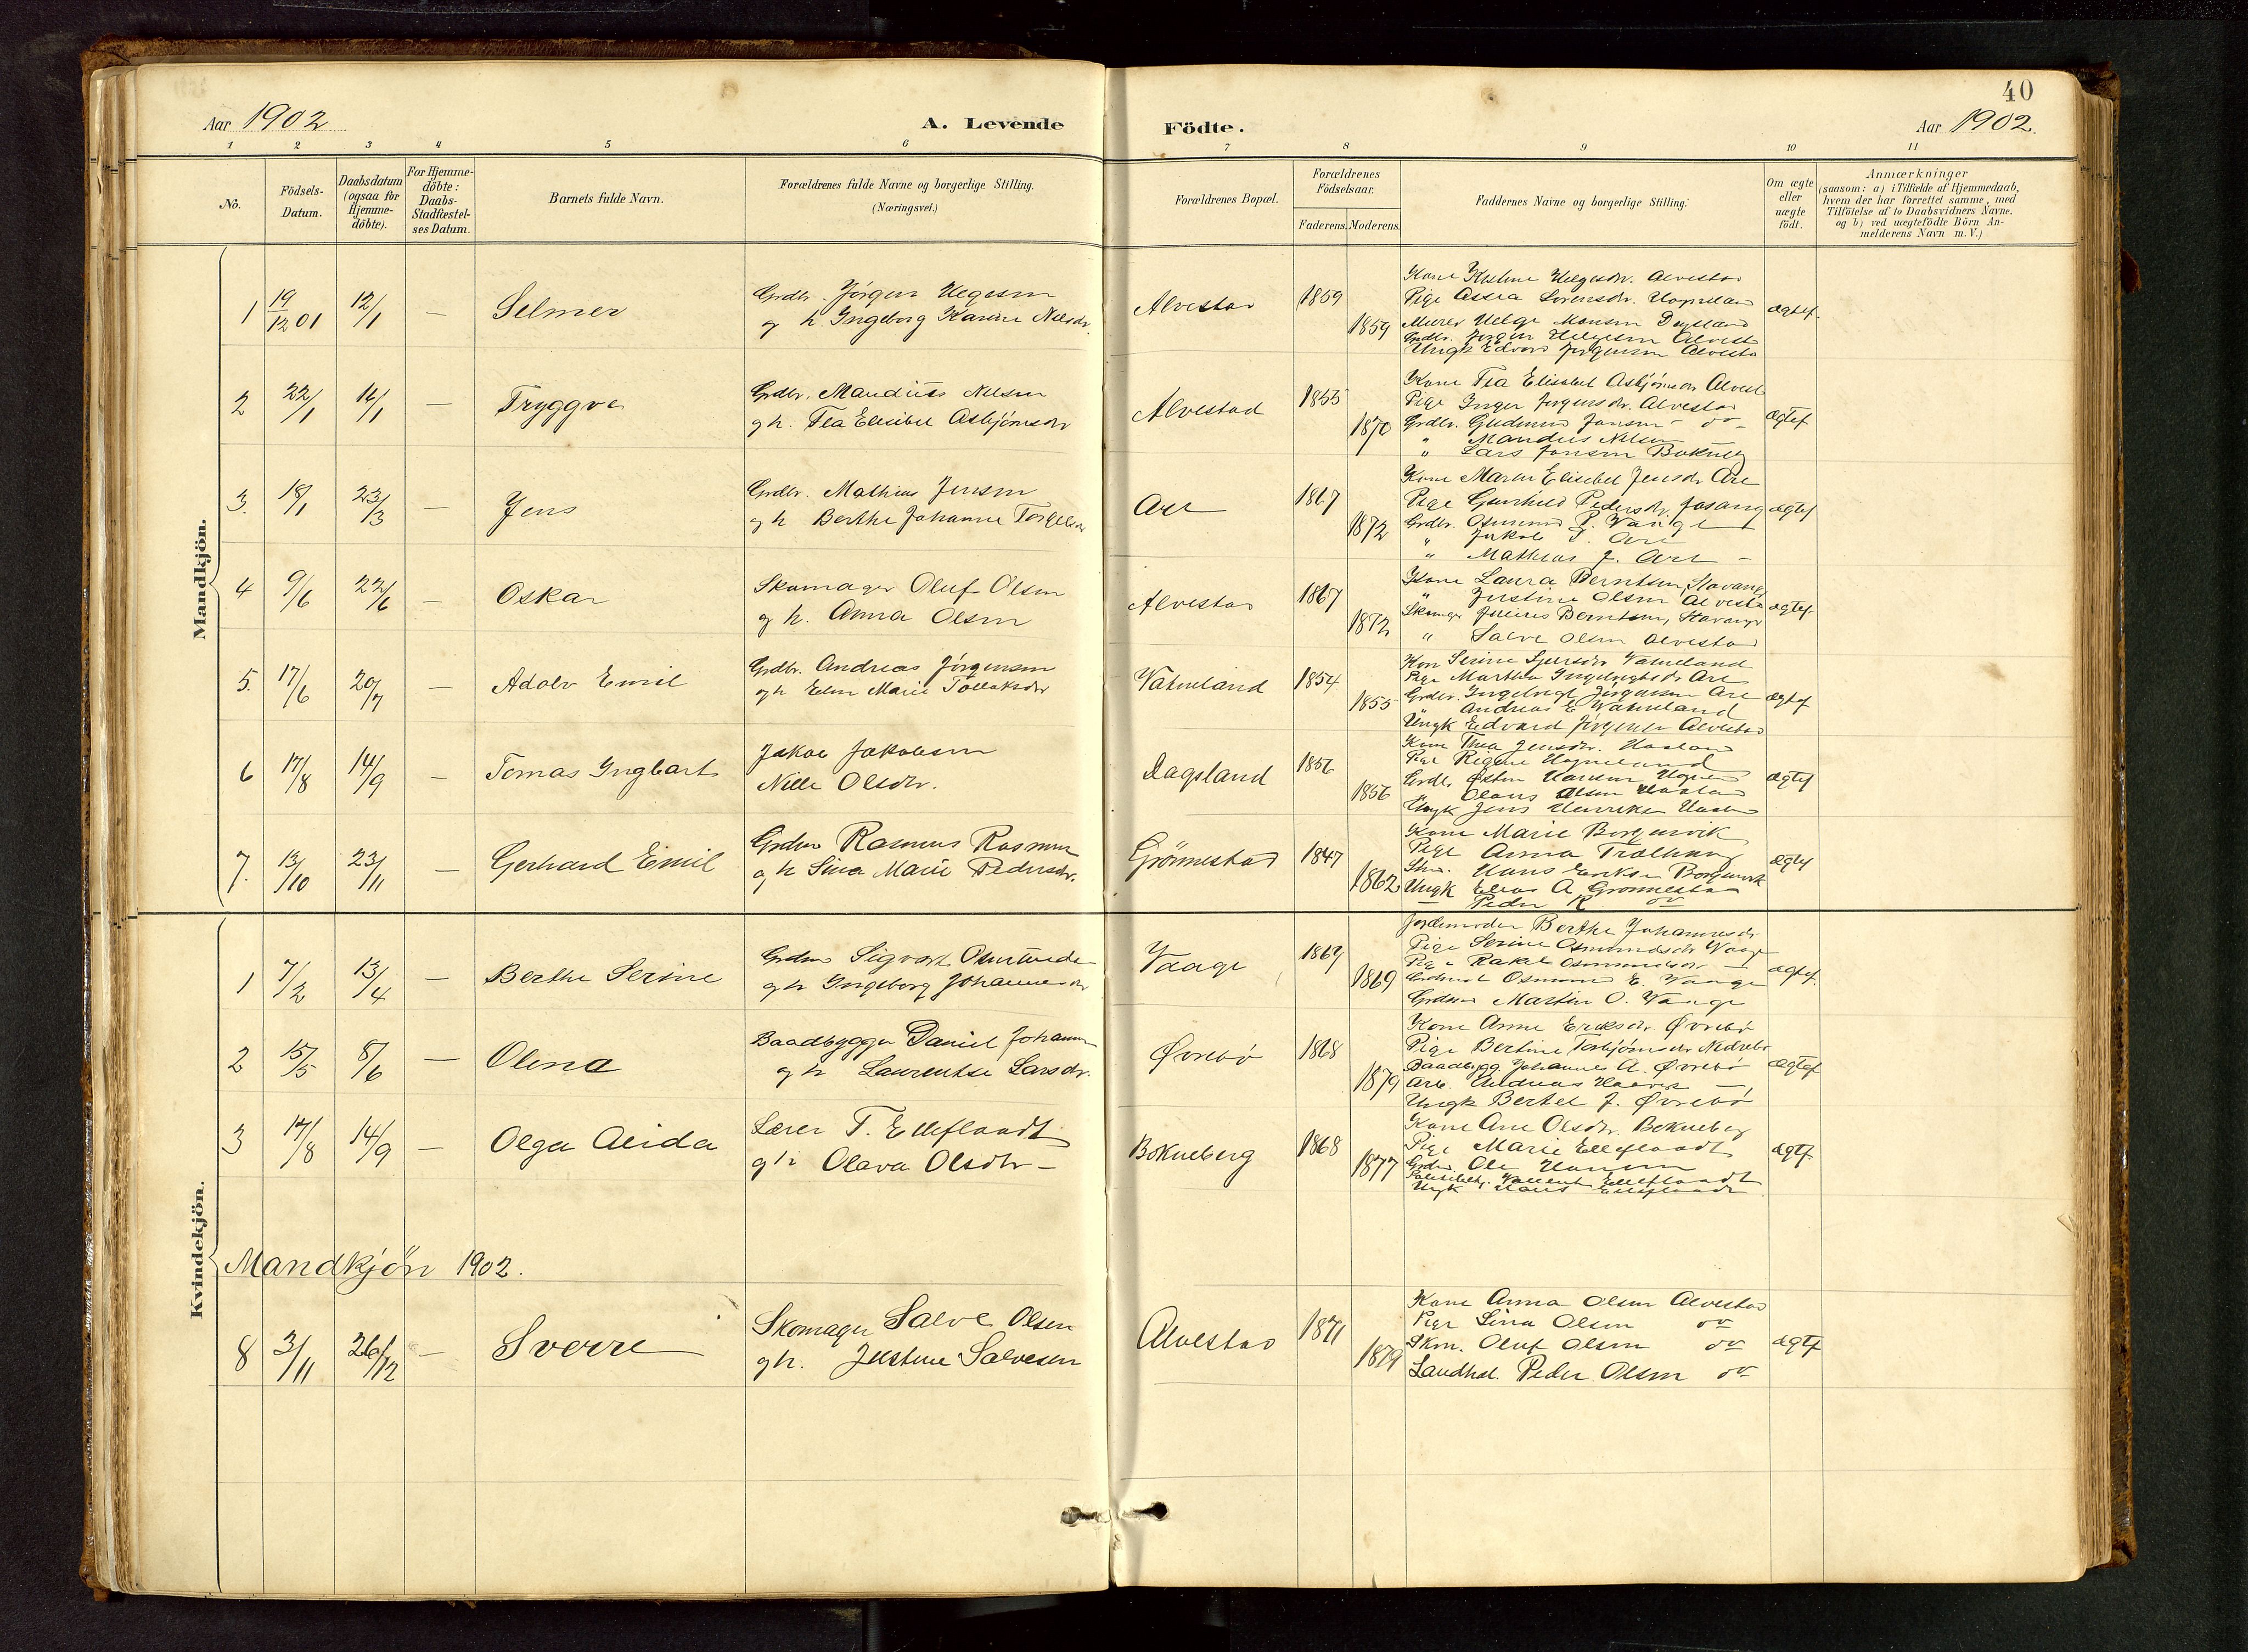 40
Aar 1902
A. Levende
Födte.
Aar 1902.
1 2 3 4 5 6 7 8 9 10 11
No.
Födsels-
Datum.
Daabsdatum
(ogsaa for
Hjemme-
döbte).
For Hjemme-
döbte:
Daabs-
Stadfæstel-
ses Datum.
Barnets fulde Navn.
Forældrenes fulde Navne og borgerlige Stilling.
(Næringsvei.)
Forældrenes Bopæl.
Forældrenes
Födselsaar.
Faderens. Moderens.
Faddernes Navne og borgerlige Stilling.
Om ægte
eller
uægte
födt.
Anmærkninger
(saasom: a) i Tilfælde af Hjemmedaab,
hvem der har forrettet samme, med
Tilföielse af to Daabsvidners Navne.
og b) ved uægtefödte Börn An-
melderens Navn m. V.)
Mandkjön.
1 19/12 01 12/1 — Selmer
Grdbr. Jörgen
og h Ingeborg Karine Nilsdr.
Alvestad 1859
1859
Kone
Pige
Murer Helge Monsen
Grdbr. Jörgen Helgesen Alvest
Ungk Edvard Jörgensen Alvesta
ægtef.
2 22/1 — Tryggve
Grdbr. Mandius Nilsen
og h. Tea Elisibet Asbjörnsdr
Alvestad 1855
1870
Kone Tea Elisabet Asbjörnsdr Alvest
Pige Inger Jörgensdr. Alvestad
Grdbr. Gudmund Jonsen do
" Mandius Nilsen —
" Lars Jonsen
ægtef
3. 18/1 23/3 — Jens
Grdbr. Mathias Jensen
og h Berthe Johanne
Are 1867
1872
Kone Maren Elisibet Jensdr Are
Pige Gunhild Pedersdr.
Grdbr. Osmund P. Vaage
" Jakob T. Are
" Mathias J. Are —
ægtef
4 9/6 22/6 — Oskar
Skomager Oluf Olsen
og h. Anna Olsen
Alvestad 1867
1872
Kone Laura Berntsen, Stavang
" Justine Olsen Alvesta
Skomgr Julius Berntsen, Stavanger
" Salve Olsen Alvestad
ægtef
5. 17/6 20/7 — Adolv Emil
Grdbr. Andreas Jörgensen
og h Elen Marie Tollaksdr
Vatneland 1854
1855
Kone Serine Vatneland
Pige Martha Ingebrigtsdr Are
Grdbr. Ingebrigt Jörgensen Are
" Andreas E Vatneland
Ungk Edvard Jörgensen Alvestad
ægtef
6 17/8 14/9 — Tomas Ingbart
Jakob Jakobsen
Nille Olsdtr.
Dagsland 1856
1856
Kone Thea Jensdr.
Pige Regine
Grdbr. Östen Hansen
" Olaus Olsen
Ungk Jens Henriksen
ægtef
7. 13/10 23/11 — Gerhard Emil
Grdmr Rasmus Rasmusen
og h Sina Marie Pedersdr.
Grönnestad 1847
1862
Kone Marie Borgenvik
Pige Anna
Hans Eriksen Borgenvik
Ungk Elias A. Grönnestad
— Peder R do
ægtef
Kvindekjön.
1 7/2 13/4 — Berthe Serine
Grdmr Sigvart
og h Ingeborg Johannesdr
Vaage 1869
1869
Jordemoder Berthe Johannesdr.
Pige Serine Osmundsdr Vaage
Pige Rakel Osmundsdr —
Osmund E. Vaage
Grdmr Martin O. Vaage
ægtef.
2 15/5 8/6 — Olena
Baadbygger Daniel Johannes
og h Laurentse Larsdr.
Øvrebö 1868
1879
Kone Anne Eriksdr. Øvrebö
Pige Bertine Torbjörnsdr Nedrebö
Baadbygg. Johannes A. Øvrebö
Arb. Andreas
Ungk Bertel J. Øvrebö
ægtef
3 17/8 14/9 — Olga Alida
Lærer T. Elleflaadt
og h Olava Olsdtr —
Bokneberg 1868
1877
Kone Ane Olsdtr. Bokneberg
Pige Marie Elleflaadt
Grdm. Ole Hansen
Elleflaadt
Ungk Hans Elleflaadt
ægtf.
Mandkjön 1902.
8 3/11 26/12 — Sverre
Skomager Salve Olsen
og h. Justine Salvesen
Alvestad 1871
1879
Kone Anna Olsen Alvestad
Pige Sina Olsen do
Skm. Oluf Olsen do
Landhdl. Peder Olsen do
ægtf